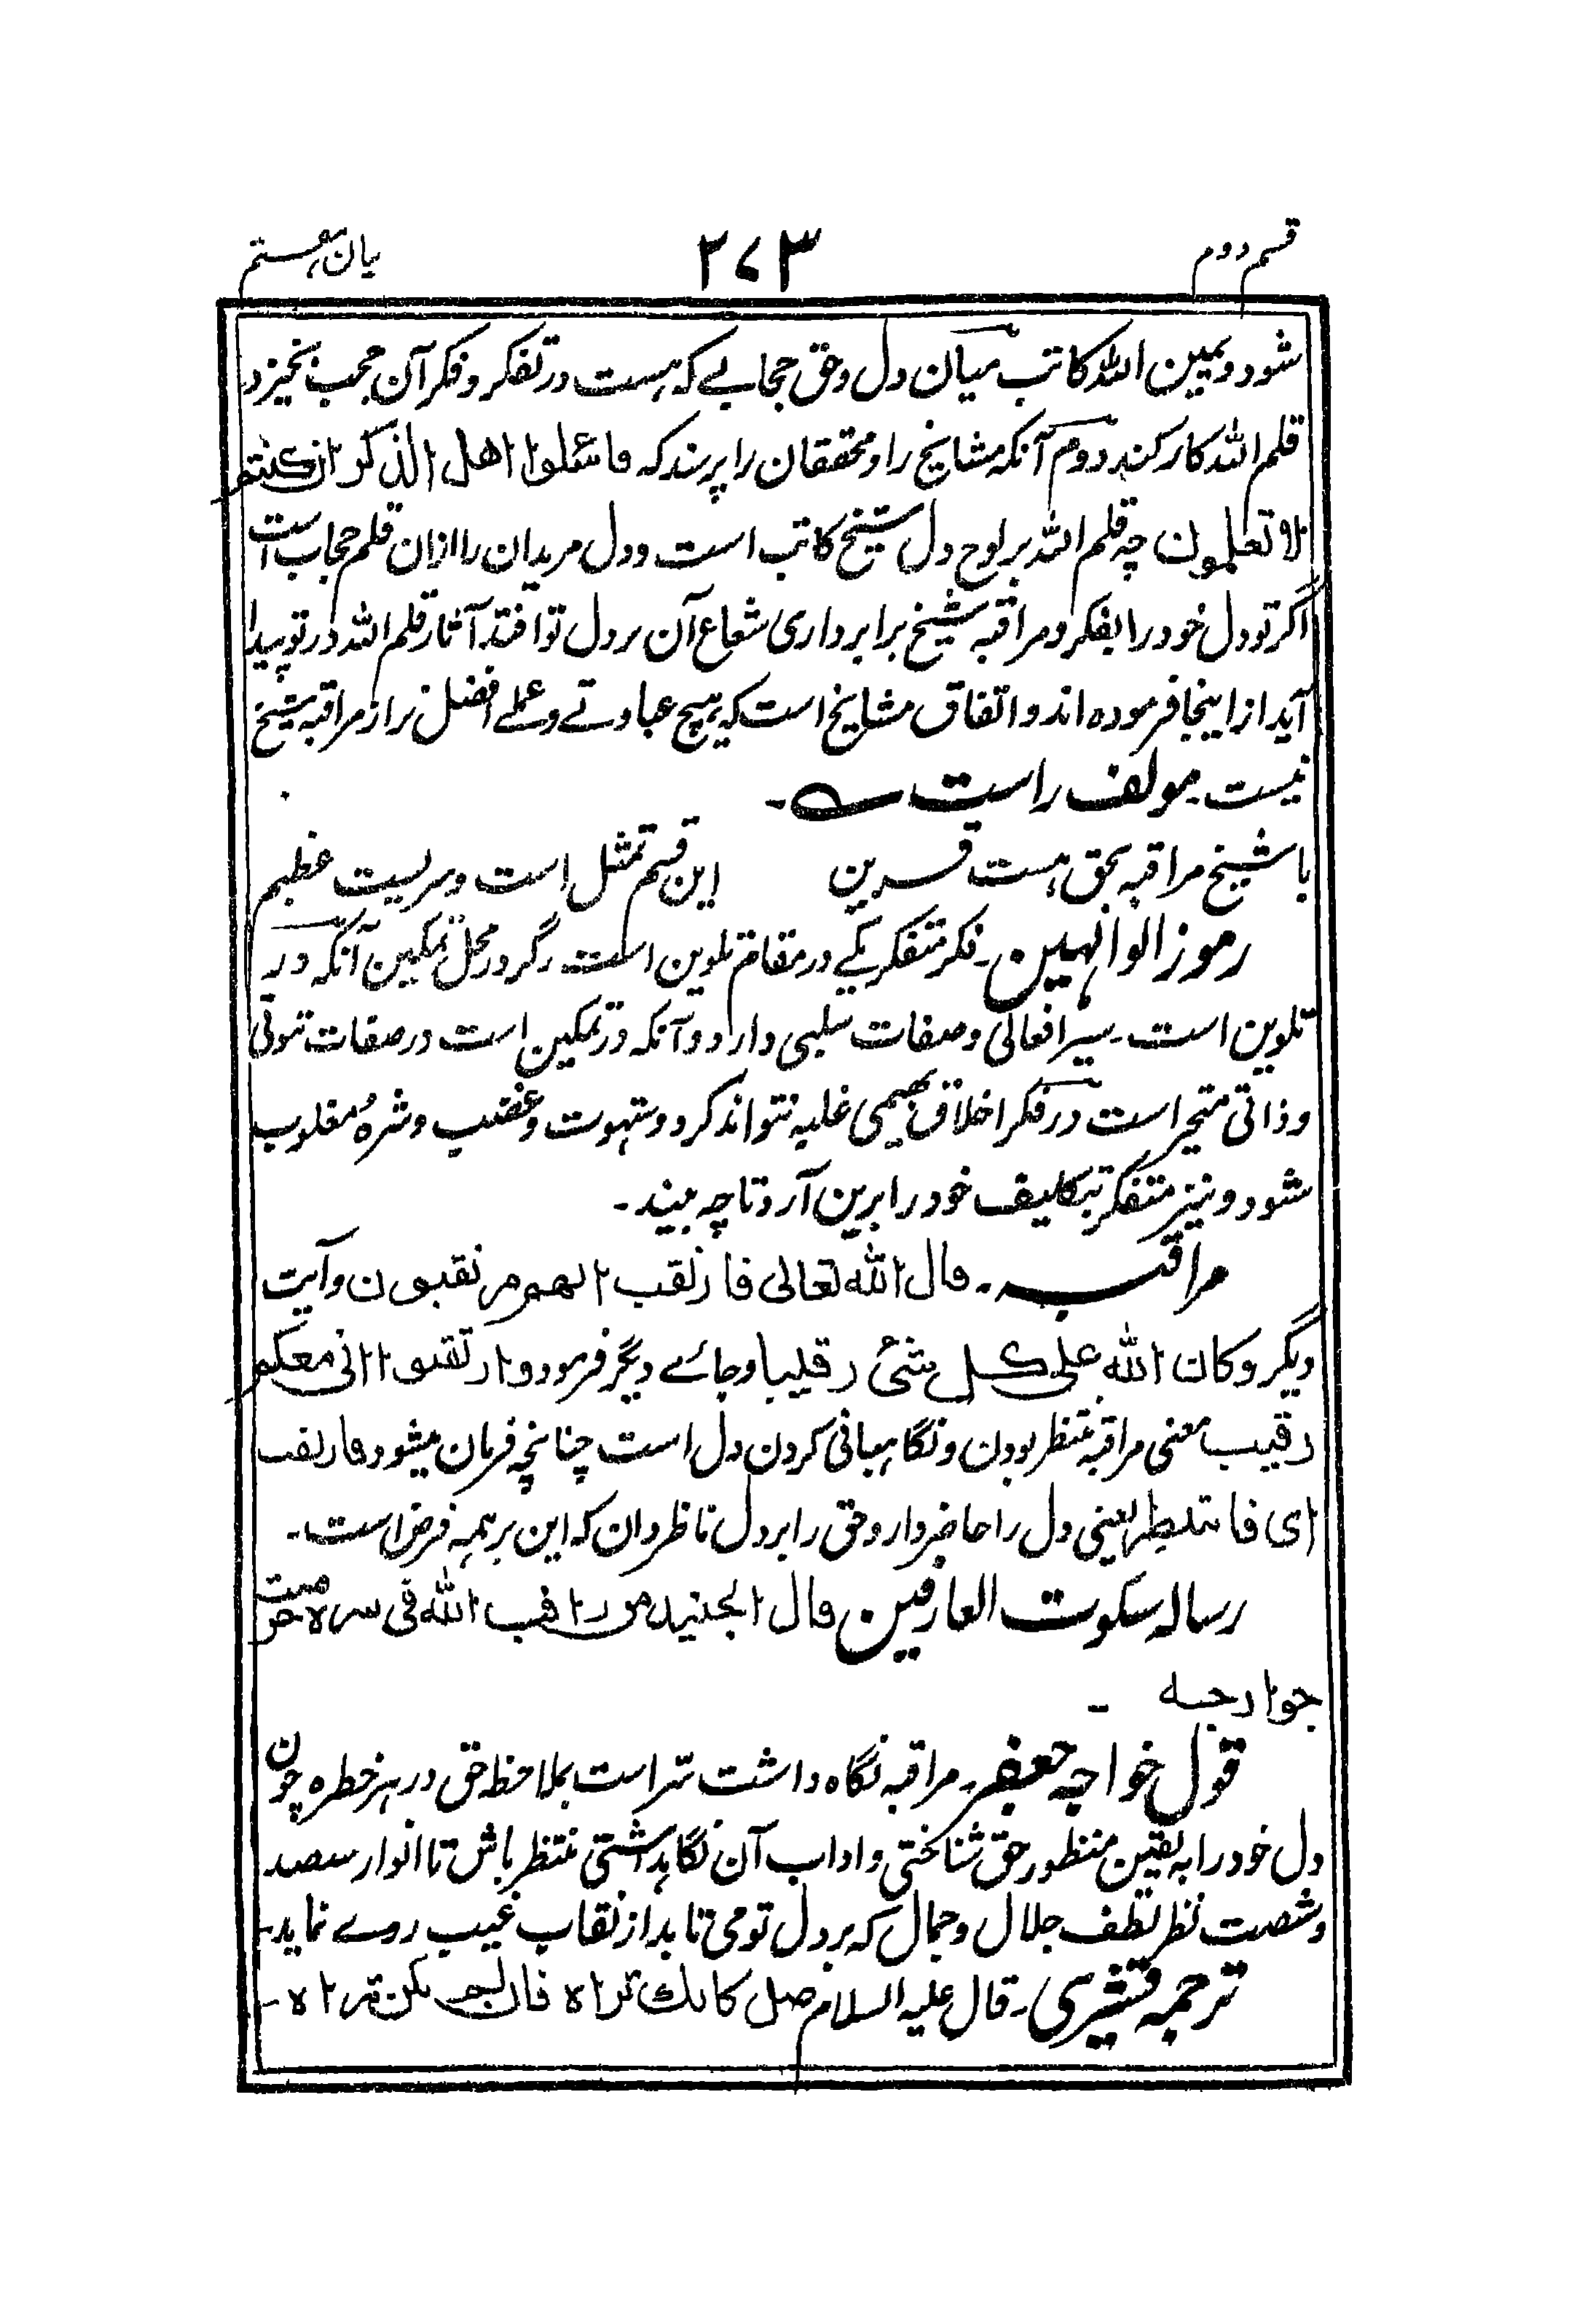 قسم دوم
۲۷۳
بیان ہشتم
شود و یمین اللہ کاتب میان دل و حق حجابے کہ ہست در تفکر و فکر آن حجب بخیزد
قلم اللہ کار کند دوم آنکہ مشایخ را و محققان را پرسند کہ فاسئلوا اھل الذکر ان کنتم
لا تعلمون چہ قلم اللہ بر لوح دل شیخ کاتب است و دل مریدان را ازان قلم حجاب است
اگر تو دل خود را بفکر و مراقبہ شیخ برابر داری شعاع آن بر دل تو افتد آثار قلم اللہ در تو پیدا
آید از اینجا فرمودہ اند و اتفاق مشایخ است کہ ہیچ عبادتے و عملے افضل تر از مراقبہ شیخ
نیست۔ مولف راست ؎۔
با شیخ مراقبہ بحق ہست قرین این قسم تمثل است و سریست عظیم
رموز الوالہین۔ فکر متفکر یکے در مقام تلوین است۔ دگر در محل تمکین آنکہ در
تلوین است۔ سیر افعالی و صفات سلبی دارد و آنکہ در تمکین است در صفات ثبوتی
و ذاتی متحیر است در فکر اخلاق بہیمی غلبہ نتواند کرد و شہوت و غضب و شرہ مغلوب
شود و نیز متفکر بتکلیف خود را برین آرد تا چہ بیند۔
مراقبہ۔ قال اللہ تعالی فارتقب انھم مرتقبون و آیت
دیگر و کان اللہ علی کل شئ رقیبا و جائے دیگر فرمود و ارتقبوا انی معکم
رقیب معنی مراقبہ منتظر بودن و نگاہبانی کردن دل است چنانچہ فرمان میشود فارتقب
ای فانتظر یعنی دل را حاضر دار و حق را بر دل ناظر دان کہ این بر ہمہ فرض است۔
رسالہ سکوت العارفین قال الجنید من راقب اللہ فی سرہ حرمت
جوارحہ ۔
قول خواجہ جعفر۔ مراقبہ نگاہ داشت سر است بملاحظہ حق در ہر خطرہ چون
دل خود را بہ یقین منظور حق شناختی و اداب آن نگاہداشتی منتظر باش تا انوار سصد
و شصت نظر لطف جلال و جمال کہ بر دل تو می تابد از نقاب غیب روے نماید۔
ترجمہ قشیری۔ قال علیہ السلام صل کانک تراہ فان لم تکن تراہ۔